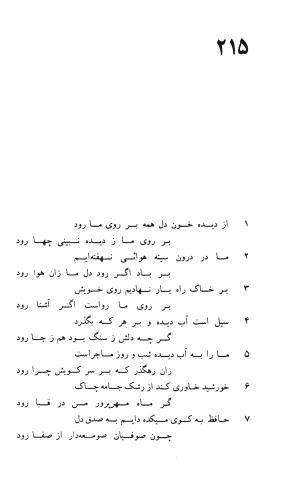 ۲۱۵
۱ از دیده خون دل همه بر روی ما رود
بر روی ما ز دیده نبینی چها رود
۲ ما در درون سینه هوائی نهفته‌ایم
بر باد اگر رود دل ما زان هوا رود
۳ بر خاک راه یار نهادیم روی خویش
بر روی ما رواست اگر آشنا رود
۴ سیل است آب دیده و بر هر که بگذرد
گر چه دلش ز سنگ بود هم ز جا رود
۵ ما را به آب دیده شب و روز ماجراست
زان رهگذر که بر سر کویش چرا رود
۶ خورشید خاوری کند از رشک جامه چاک
گر ماه مهرپرور من در قبا رود
۷ حافظ به کوی میکده دایم به صدق دل
چون صوفیان صومعه‌دار از صفا رود